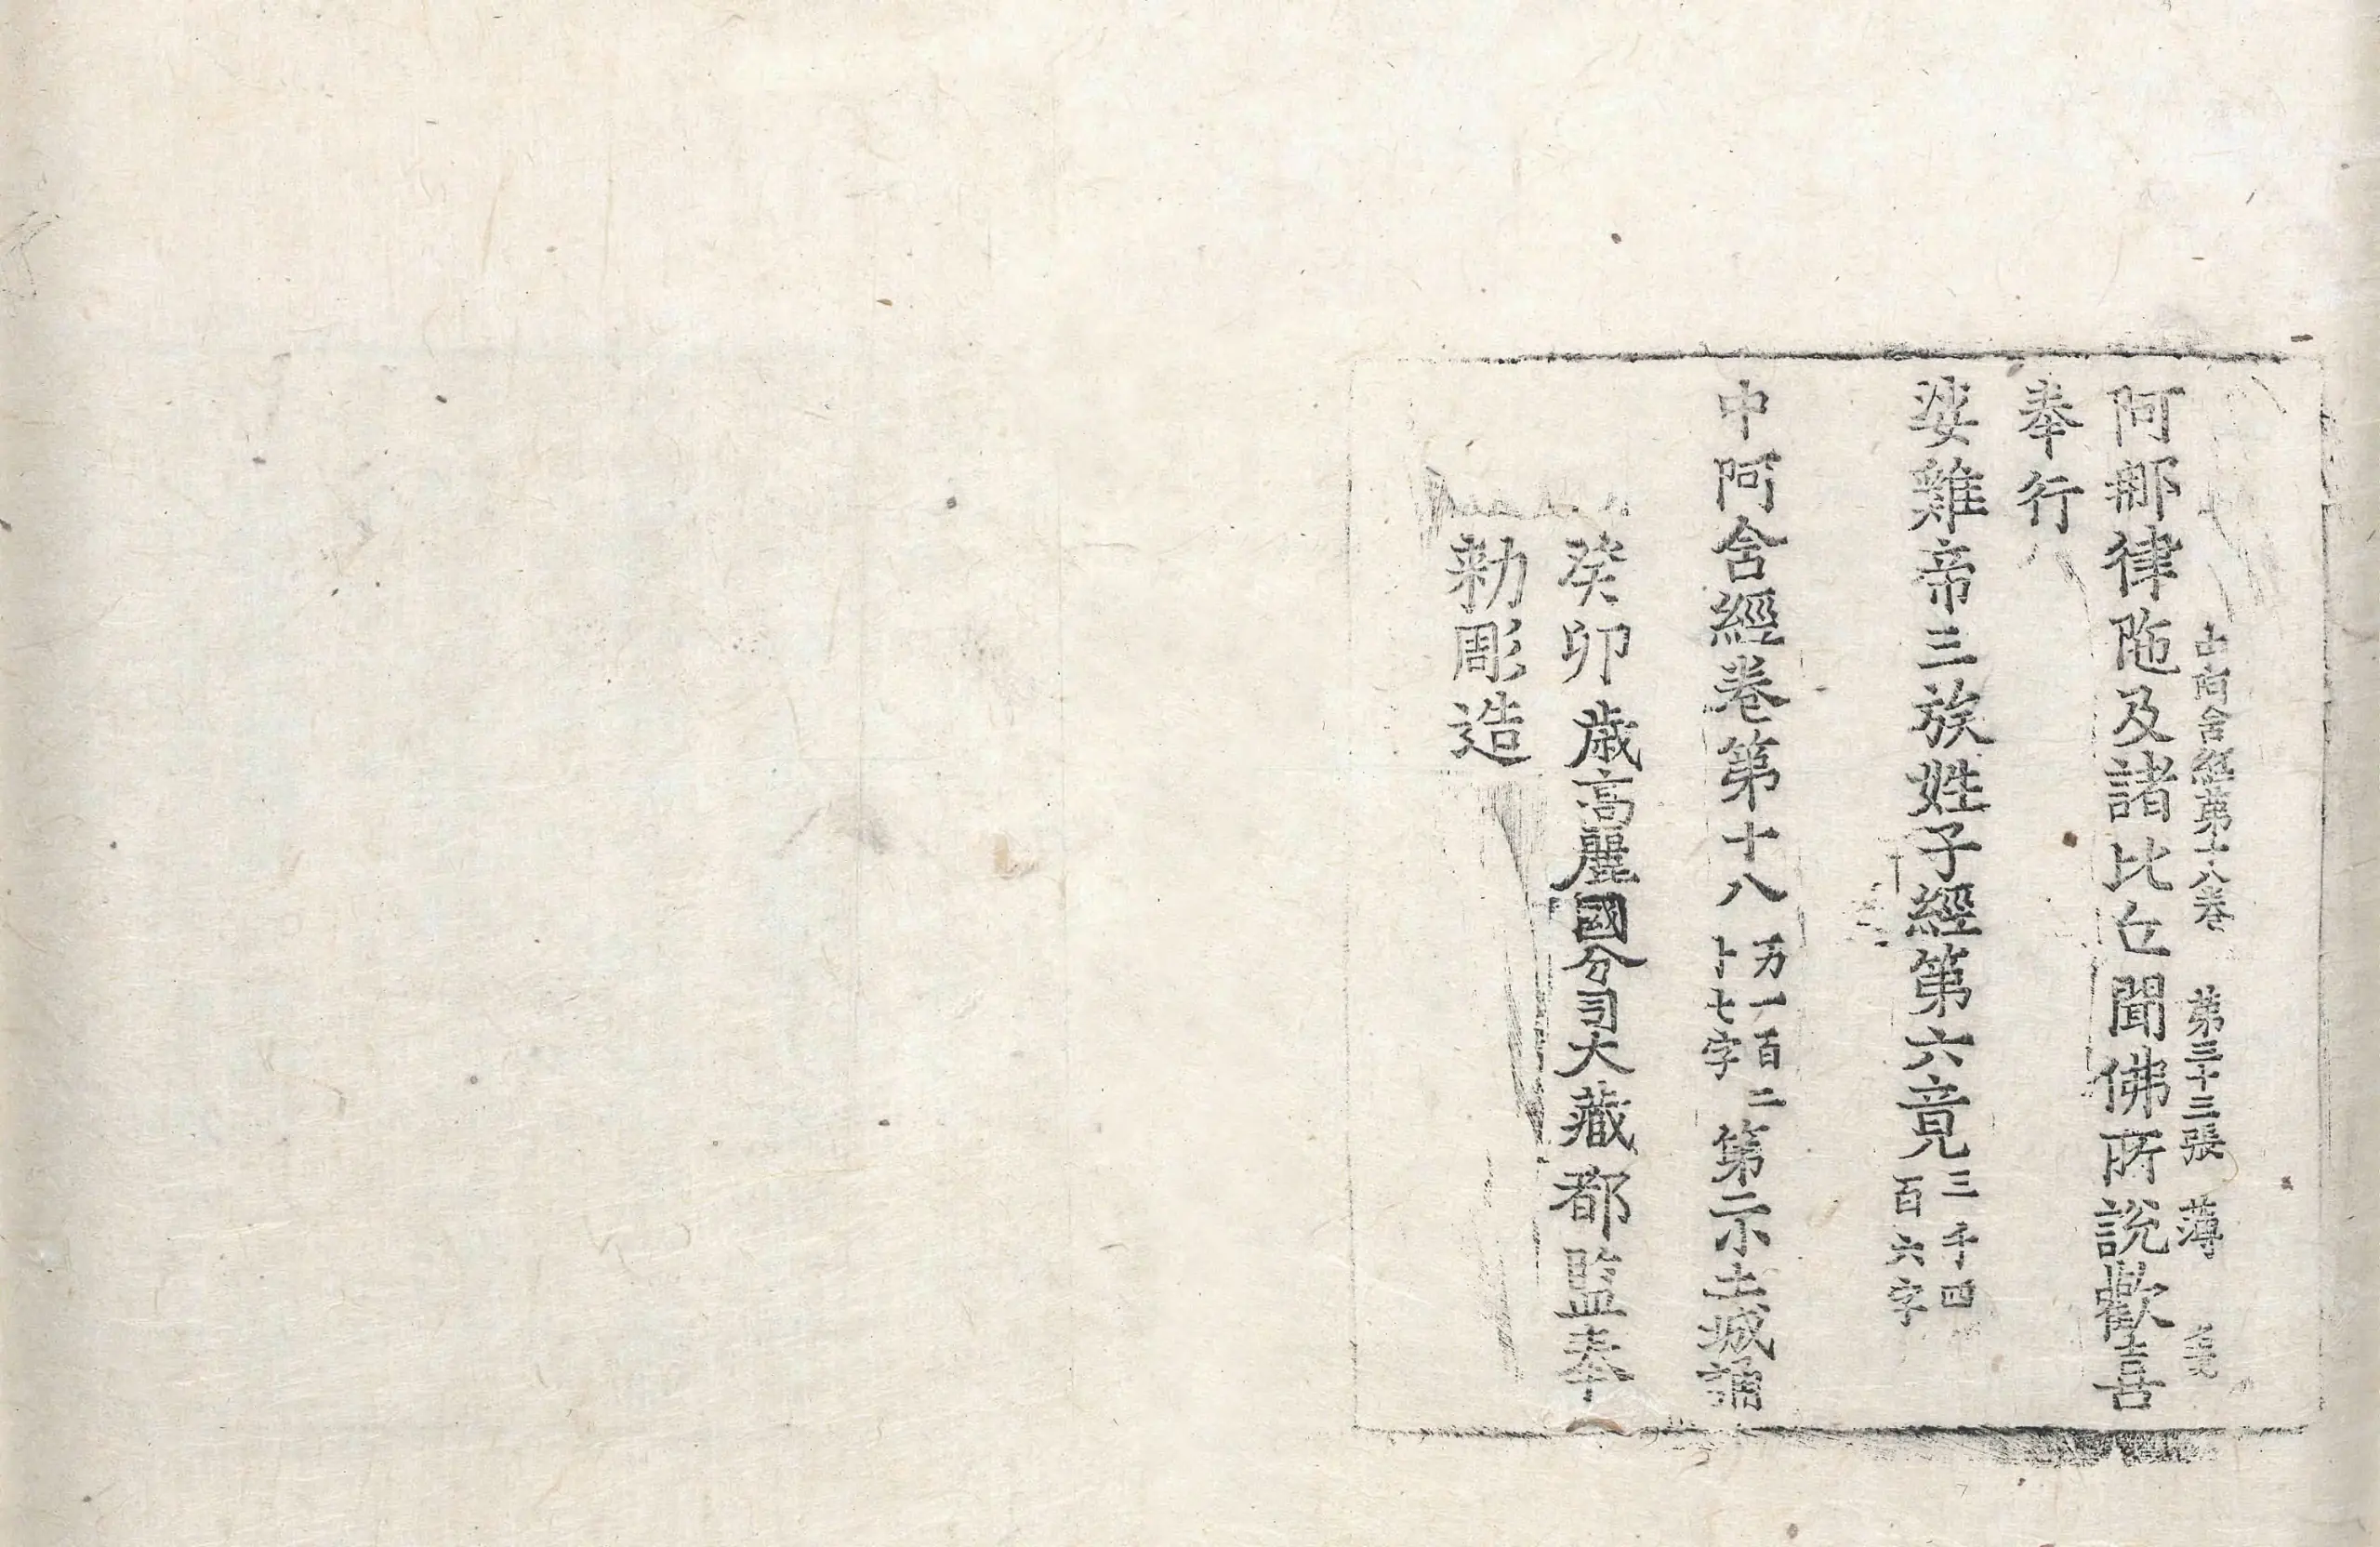 中阿含經第十八卷 第三十三張 薄
阿那律陁及諸比丘聞佛所說歡喜
奉行
娑雞帝三族姓子經第六竟三千四
百六字
中阿含經卷第十八万一百二
十七字第二小土城誦
癸卯歲高麗國分司大藏都監奉
勅彫造